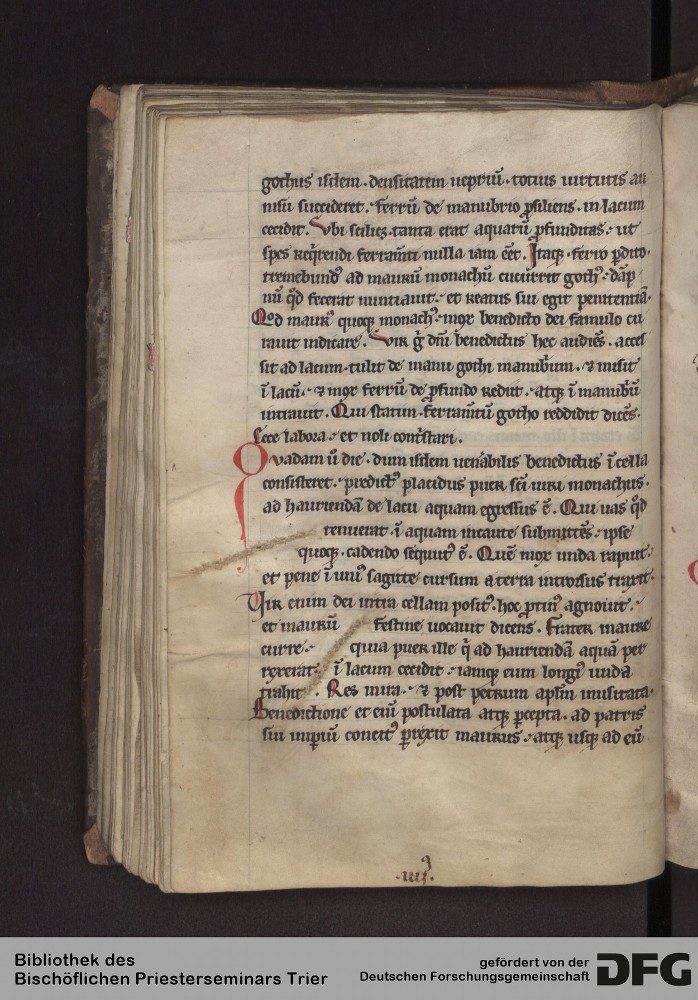 gothus isdem. densitatem uepriū. totius uirtutis an
nisu succideret. ferrū de manubrio ꝓsiliens. in lacum
cecidit. Vbi scilicꝫ tanta erat aquarū ꝓfunditas. ut
spes req̇rendi ferram̄ti nulla iam eēt. Itaqꝫ ferro ꝑdito.
tremebundꝰ ad maurū monachū cucurrit gothꝰ. dāp
nū qd̄ fecerat nuntiauit. et reatus sui egit penitentiā.
Qod maurꝰ quoqꝫ monachꝰ. mox benedicto dei famulo cu
rauit indicare. Vir ġ dn̄i benedictus hec audiēs. acces
sit ad lacum. tulit de manu gothi manubrium. ⁊ misit
ī lacū. ⁊ mox ferrū de ꝓfundo rediit. atqꝫ ī manubriū
intrauit. Qui statim ferram̄tū gotho reddidit dicēs.
Ecce labora. et noli contristari.
Quadam u̇ die. dum isdem uen̄abilis benedictus ī cella
consisteret. predictꝰ placidus puer sc̄i uiri monachus.
ad hauriendā de lacu aquam egressus ē. Qui uas qd̄
tenuerat. ī aquam incaute submittēs. ipse
quoqꝫ cadendo secutꝰ ē. Quē mox unda rapuit.
et pene ī uniꝰ sagitte cursum a terra introrsus traxit.
Vir enim dei intra cellam positꝰ. hoc ꝓtinꝰ agnouit.
et maurū festine uocauit dicens. Frater maure
curre. quia puer ille q̇ ad hauriendā aquā per
rexerat. ī lacum cecidit. iamqꝫ eum longiꝰ unda
trahit. Res mira. ⁊ post petrum apl̄m inusitata.
Benedictione etenī postulata atqꝫ ꝑcepta. ad patris
sui imꝑiū concitꝰ ꝑrexit maurus. atqꝫ usqꝫ ad eū
.iiiiꝰ.
Bibliothek des
Bischöflichen Priesterseminars Trier
gefördert von der
Deutschen Forschungsgemeinschaft
DFG